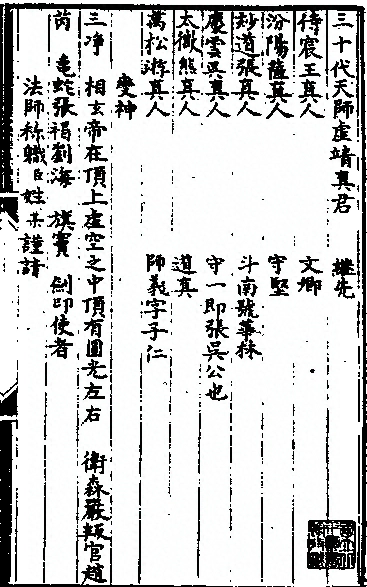 三十代天師虛靖真君　繼先
侍宸王真人　文卿
汾陽薩真人　守堅
妙道張真人　斗南號華林
雲吳真人　守一即張吳公也
太徽熊真人　道真
萬松游真人　師義字子仁
變神
三淨　相玄帝在頂上虛空之中頂有圓光左右　衛森嚴叛官趙
苪　龜蛇張褐劉海　旗竇　劍印使者
法師称職臣姓某謹請